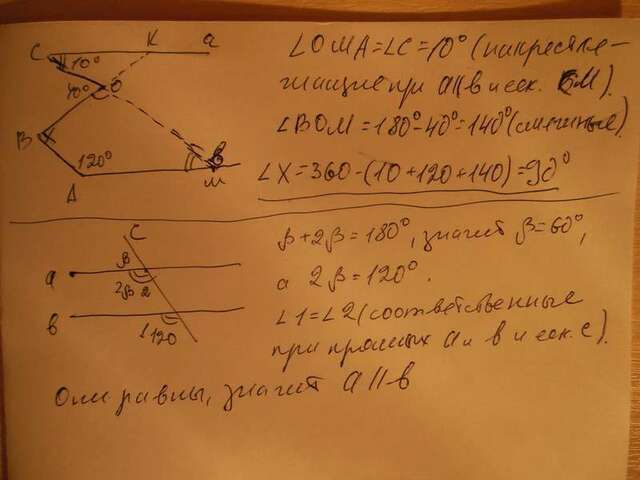 C K a
10°
40° O
B x
120°
A M
∠OMA=∠C=10° (накрестле-
жащие при a||b и сек. CM).
∠BOM=180°-40°=140° (смежные).
∠X=360-(10+120+140)=90°
C
a β
2β 2
b 1 120
β+2β=180°, значит β=60°,
а 2β=120°.
∠1=∠2 (соответственные
при прямых a и b и сек. c).
Они равны, значит a||b